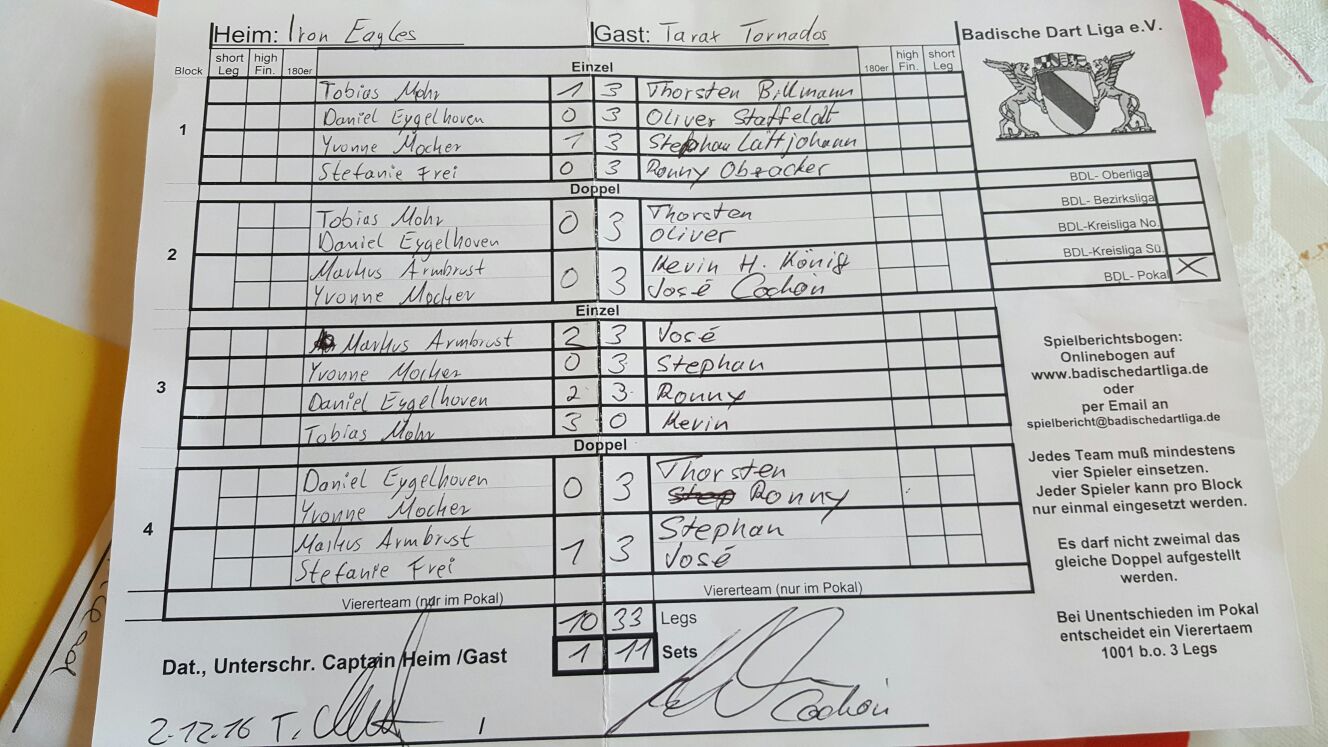 Heim: Iron Eagles Gast: Tarax Tornados
Badische Dart Liga e.V.
Block short Leg high Fin. 180er Einzel 180er high Fin. short Leg
1
Tobias Mohr 1 3 Thorsten Billmann
Daniel Eygelhoven 0 3 Oliver Staffeldt
Yvonne Mocher 1 3 Stephan Lättjohann
Stefanie Frei 0 3 Ronny Obracker
Doppel
2
Tobias Mohr 0 3 Thorsten
Daniel Eygelhoven Oliver
Markus Armbrust 0 3 Kevin H. König
Yvonne Mocher José Cochón
Einzel
3
Markus Armbrust 2 3 José
Yvonne Mocher 0 3 Stephan
Daniel Eygelhoven 2 3 Ronny
Tobias Mohr 3 0 Kevin
Doppel
4
Daniel Eygelhoven 0 3 Thorsten
Yvonne Mocher Step Ronny
Markus Armbrust 1 3 Stephan
Stefanie Frei José
Viererteam (nur im Pokal) Viererteam (nur im Pokal)
10 33 Legs
1 11 Sets
Dat., Unterschr. Captain Heim /Gast
2-12-16 T. / Cochón
BDL- Oberliga
BDL- Bezirksliga
BDL-Kreisliga No.
BDL-Kreisliga Sü.
BDL- Pokal X
Spielberichtsbogen:
Onlinebogen auf
www.badischedartliga.de
oder
per Email an
spielbericht@badischedartliga.de
Jedes Team muß mindestens
vier Spieler einsetzen.
Jeder Spieler kann pro Block
nur einmal eingesetzt werden.
Es darf nicht zweimal das
gleiche Doppel aufgestellt
werden.
Bei Unentschieden im Pokal
entscheidet ein Vierertaem
1001 b.o. 3 Legs